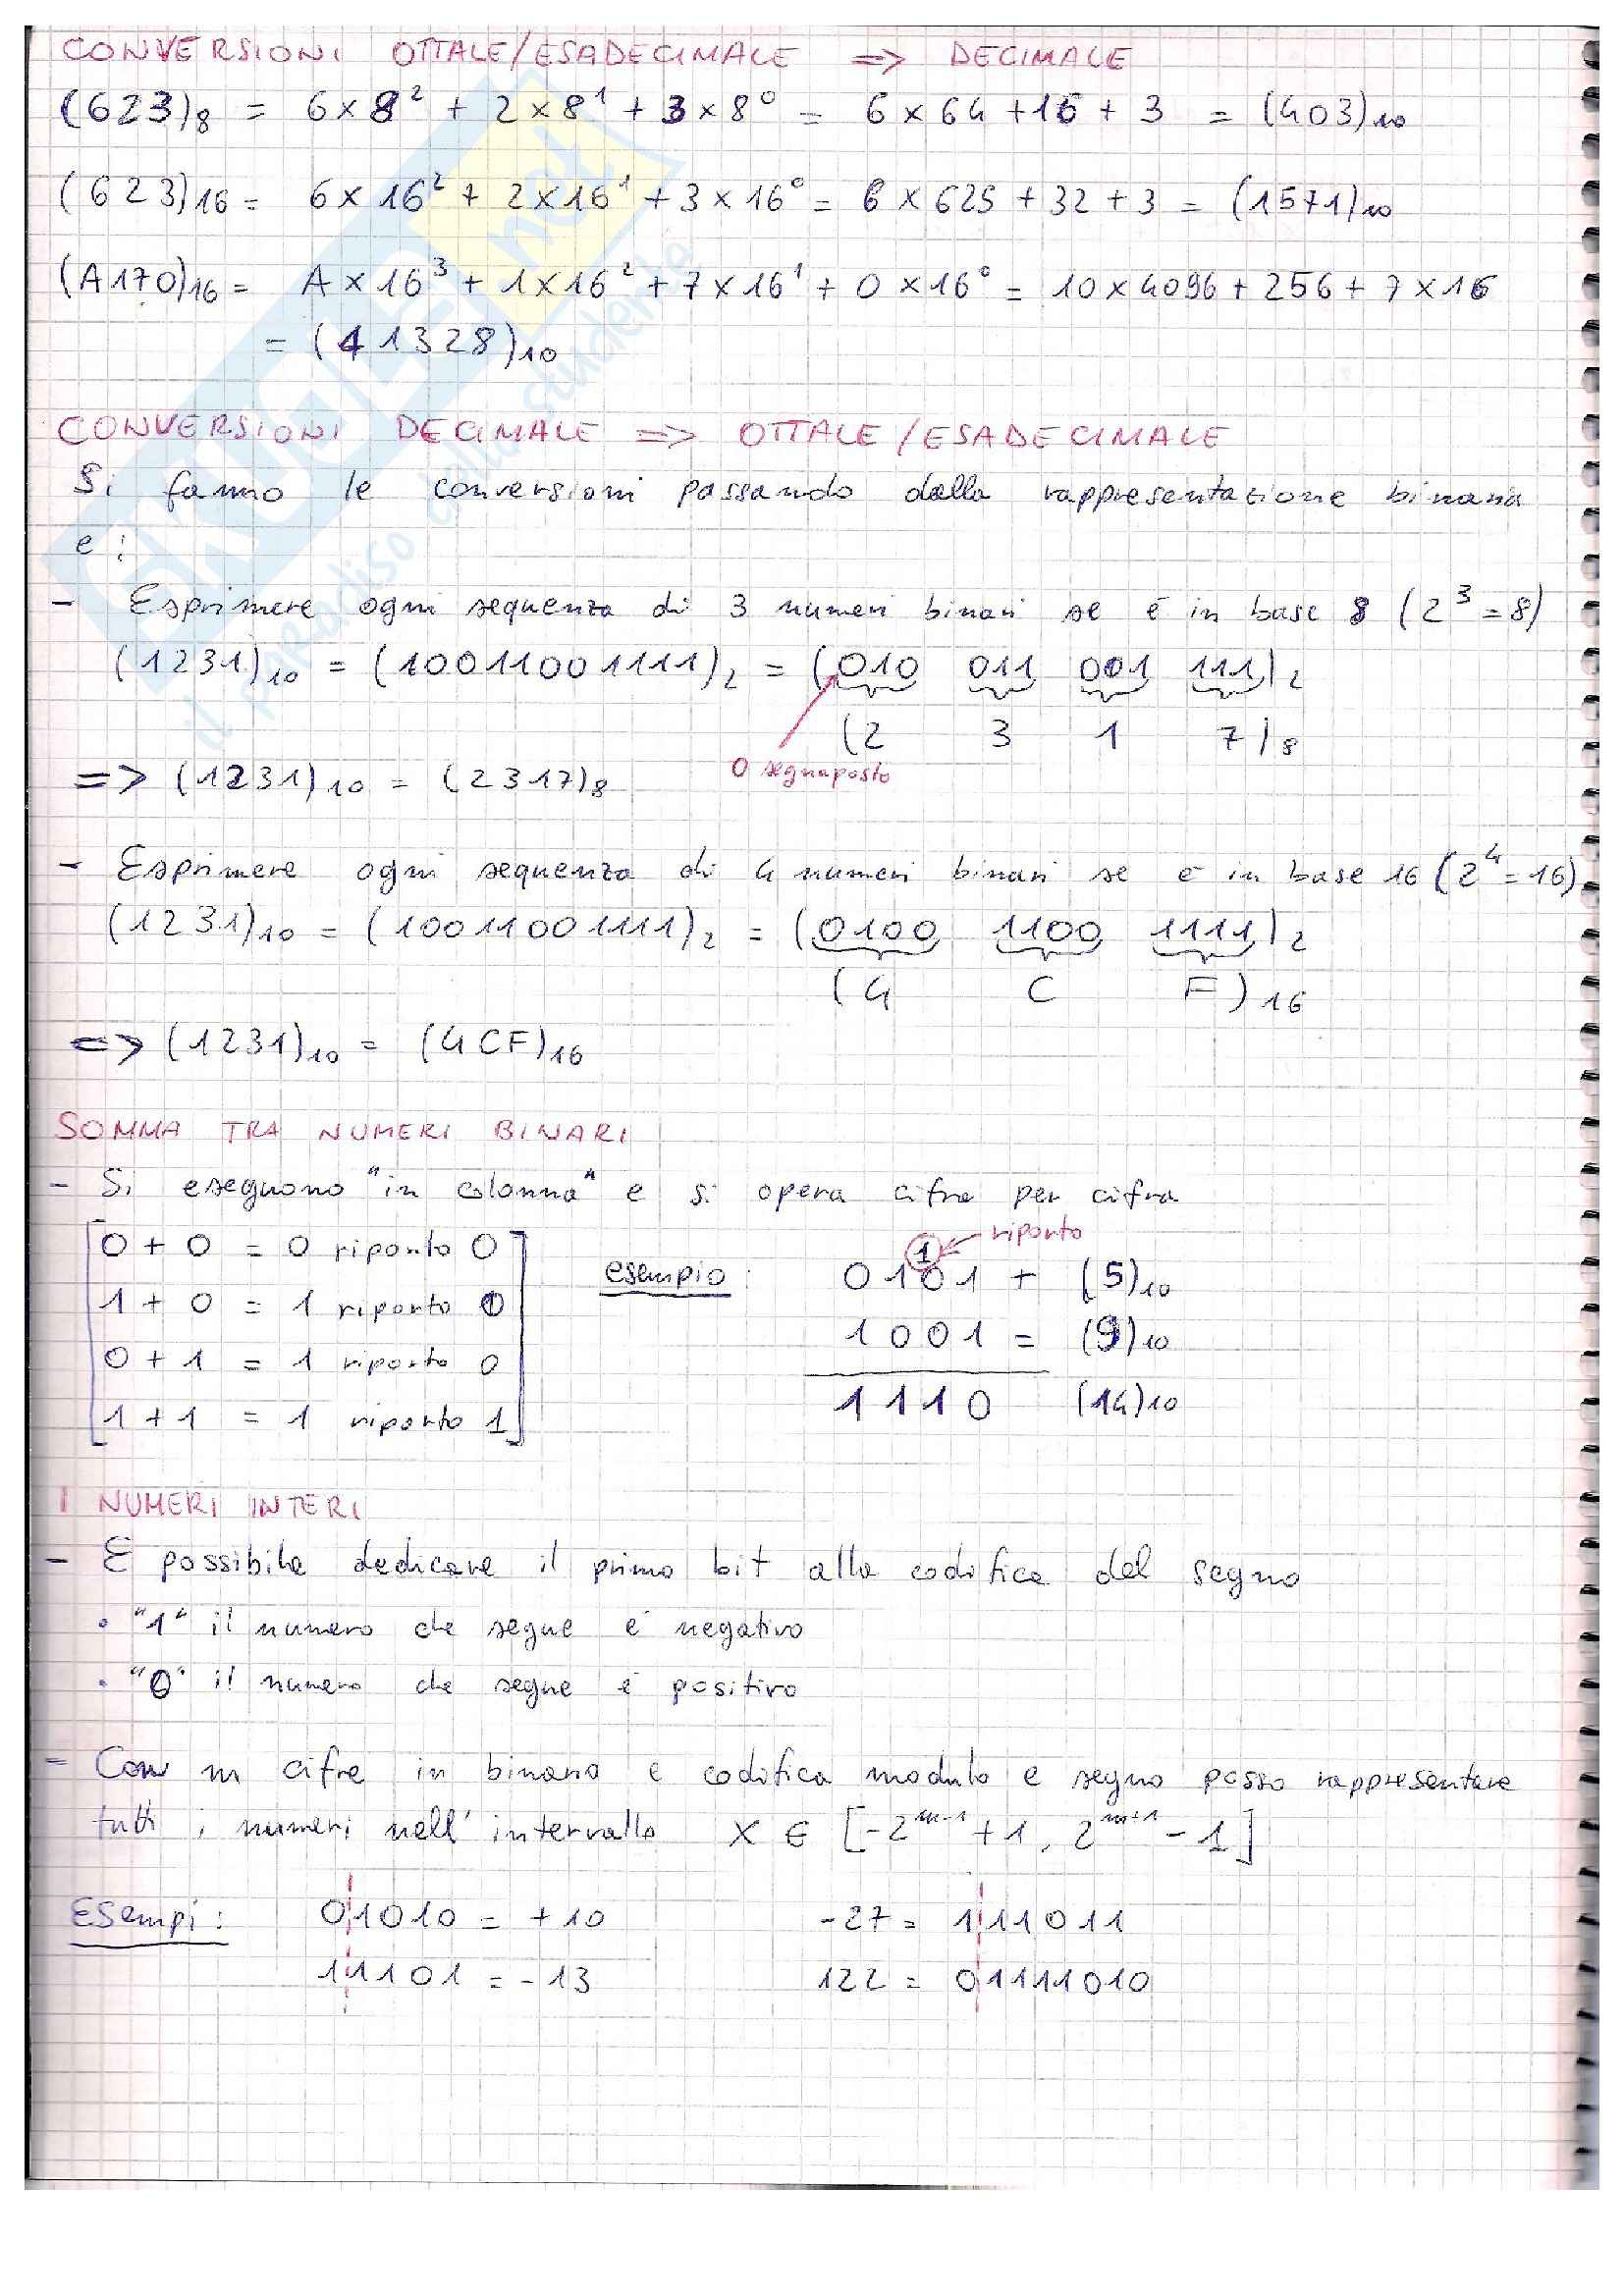 CONVERSIONI OTTALE/ESADECIMALE => DECIMALE
(623)₈ = 6×8² + 2×8¹ + 3×8⁰ = 6×64+16+3 = (403)₁₀
(623)₁₆ = 6×16² + 2×16¹ + 3×16⁰ = 6×625+32+3 = (1571)₁₀
(A170)₁₆ = A×16³ + 1×16² + 7×16¹ + 0×16⁰ = 10×4096+256+7×16
= (41328)₁₀
CONVERSIONI DECIMALE => OTTALE/ESADECIMALE
Si fanno le conversioni passando dalla rappresentazione binaria
e:
- Esprimere ogni sequenza di 3 numeri binari se è in base 8 (2³=8)
(1231)₁₀ = (10011001111)₂ = (010 011 001 111)₂
(2 3 1 7)₈
0 segnaposto
=> (1231)₁₀ = (2317)₈
- Esprimere ogni sequenza di 4 numeri binari se è in base 16 (2⁴=16)
(1231)₁₀ = (10011001111)₂ = (0100 1100 1111)₂
(4 C F)₁₆
=> (1231)₁₀ = (4CF)₁₆
SOMMA TRA NUMERI BINARI
- Si eseguono "in colonna" e si opera cifra per cifra
0 + 0 = 0 riporto 0
1 + 0 = 1 riporto 0
0 + 1 = 1 riporto 0
1 + 1 = 1 riporto 1
esempio:
1 riporto
0101 + (5)₁₀
1001 = (9)₁₀
1110 (14)₁₀
I NUMERI INTERI
- È possibile dedicare il primo bit alla codifica del segno
• "1" il numero che segue è negativo
• "0" il numero che segue è positivo
- Con m cifre in binario e codifica modulo e segno posso rappresentare
tutti i numeri nell'intervallo X ∈ [-2ᵐ⁻¹+1, 2ᵐ⁺¹-1]
Esempi: 01010 = +10 -27 = 1111011
11101 = -13 122 = 01111010
il paradiso dello studente